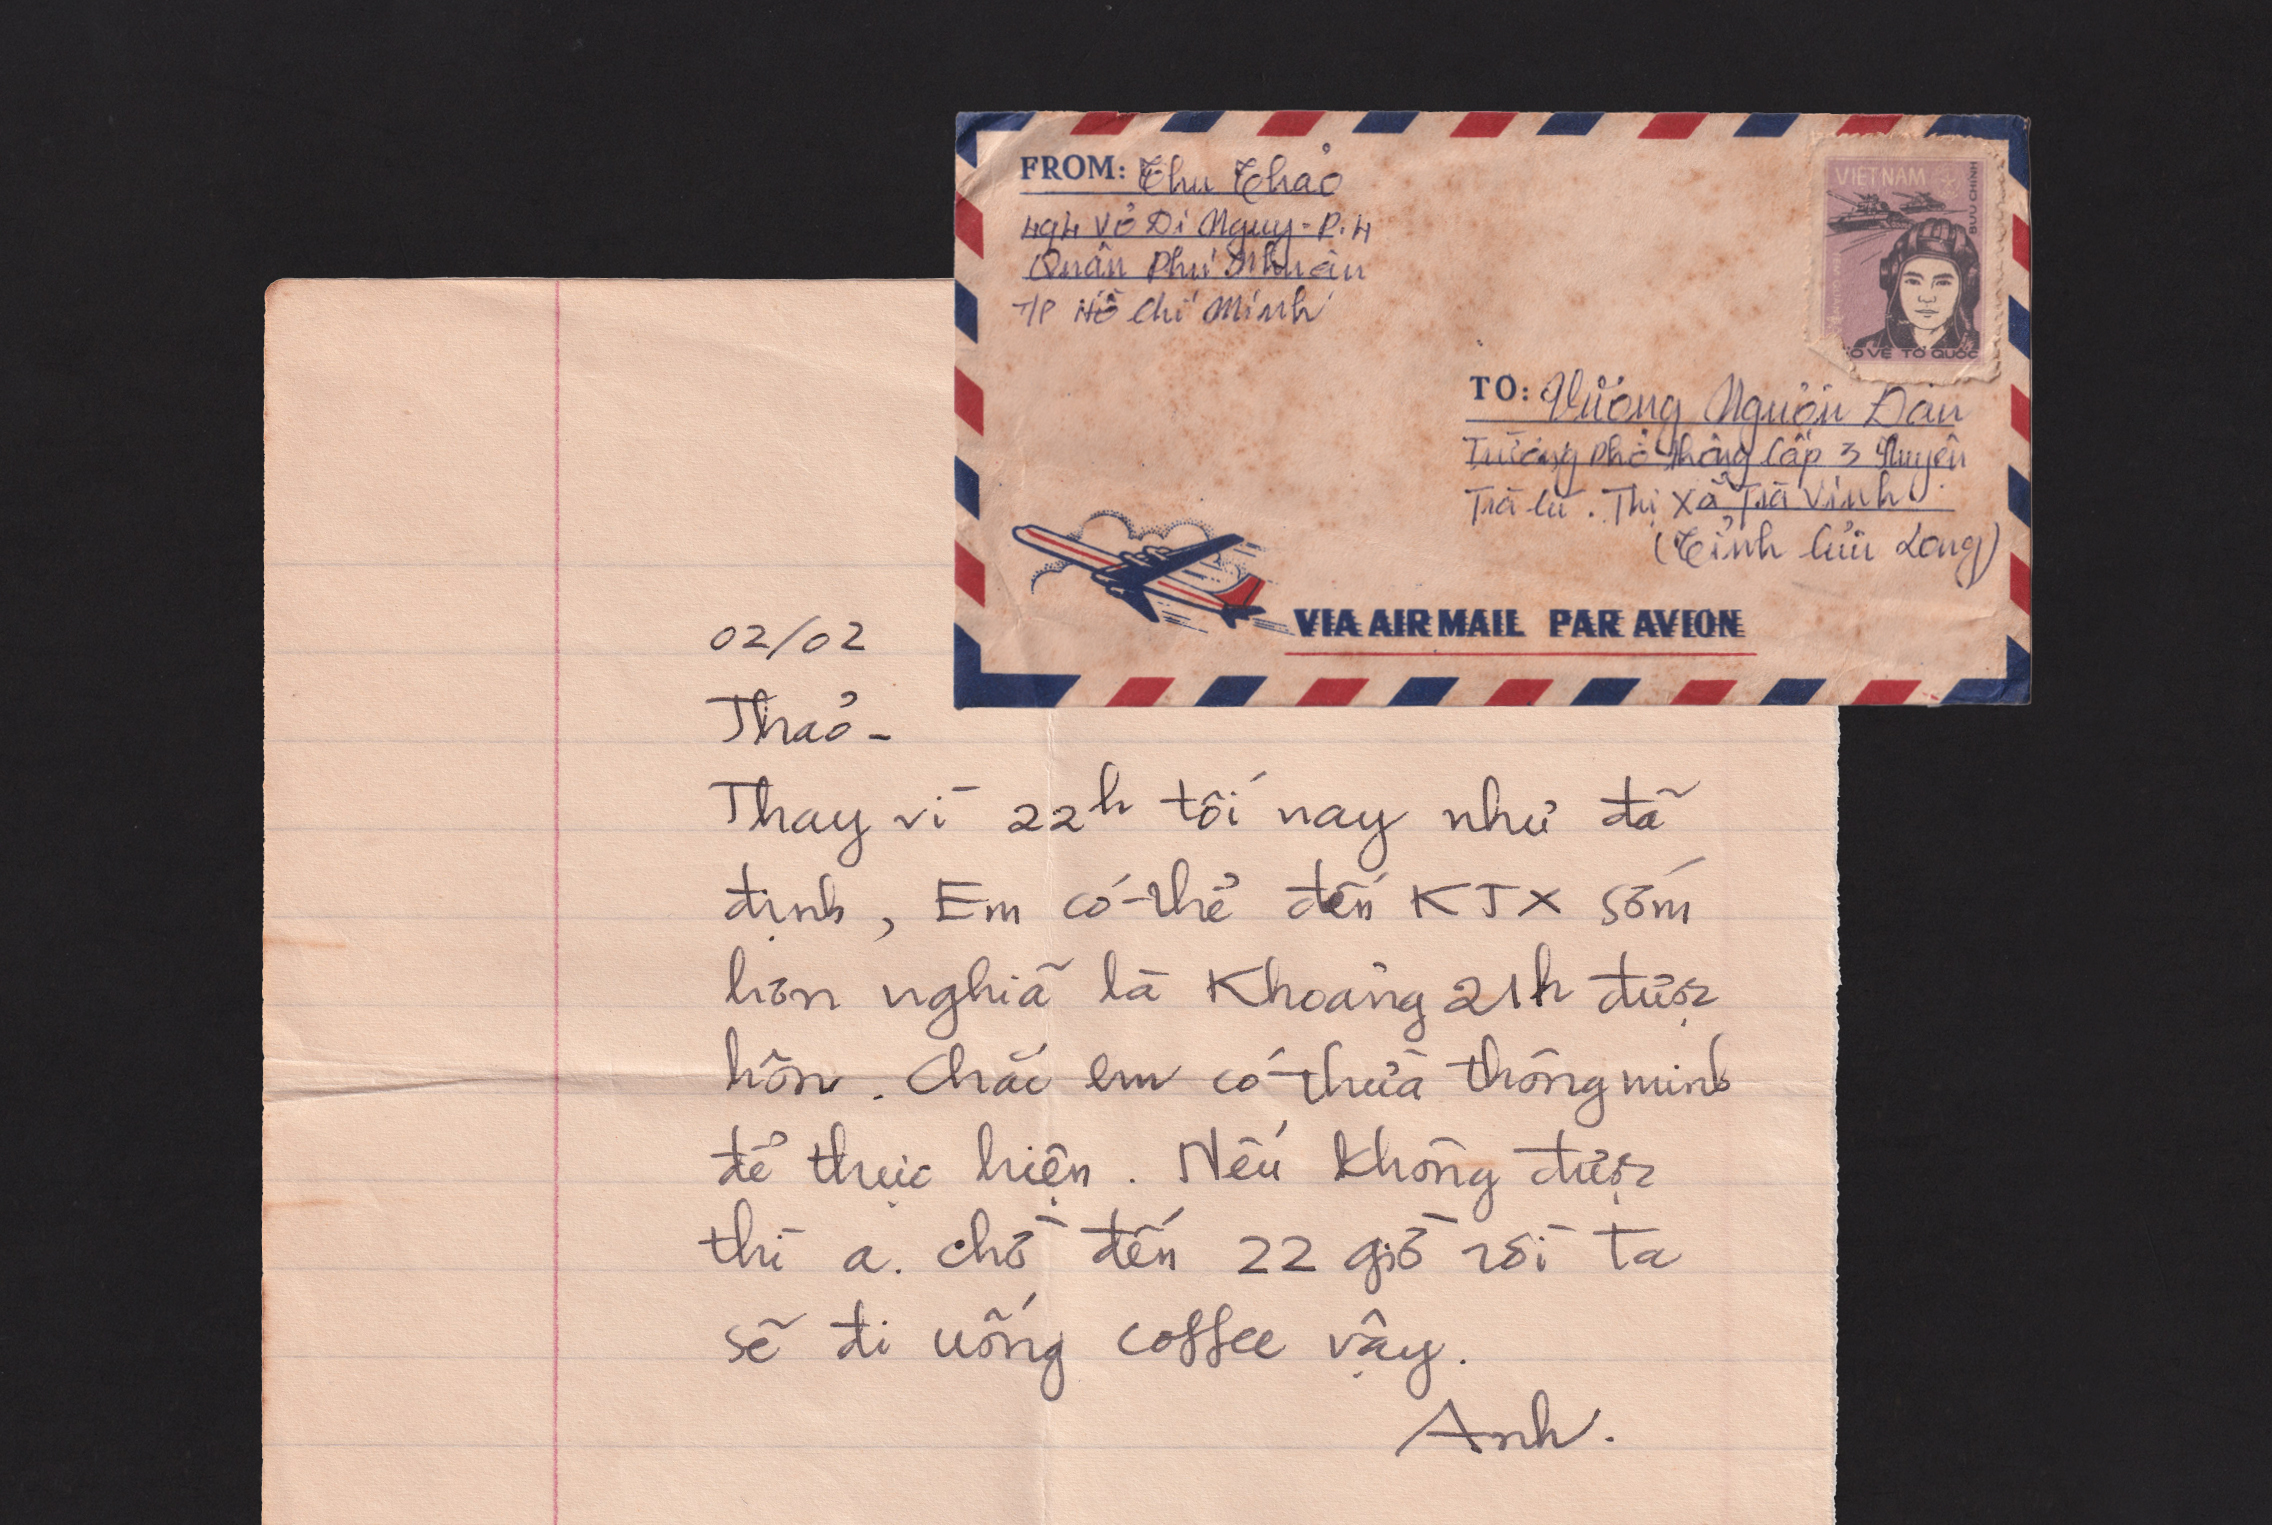 FROM: Thu Thảo
494 Võ Di Nguy - P.4
Quân Phú Nhuận
T/P Hồ Chí Minh
VIETNAM
BƯU CHÍNH
O VỆ TỔ QUỐC
TO: Vương Nguơn Đan
Trường phổ thông Cấp 3 Huyện
Trà Cú. Thị Xã Trà Vinh
(Tỉnh Cửu Long)
VIA AIR MAIL PAR AVION
02/02
Thảo -
Thay vì 22h tối nay như đã
định, Em có thể đến KTX sớm
hơn nghiã là Khoảng 21h được
hôn. Chắc em có thừa thông minh
để thực hiện. Nếu không được
thì a. chờ đến 22 giờ rồi ta
sẽ đi uống coffee vậy.
Anh.